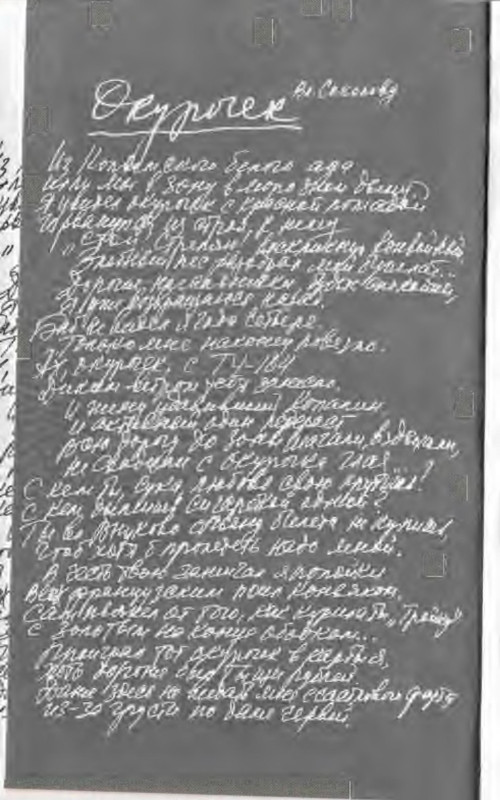 Окурочек
Вл. Соколову
Из Колымского белого ада
шли мы в зону в морозном дыму,
Я увидел окурочек с красной помадой
И рванулся из строя к нему.
"Стой, стреляю!" воскликнул конвойный,
Злобный пёс разодрал мой бушлат...
Дорогие начальники, будьте спокойны,
Я уже возвращаюсь назад.
Баб не видел я года четыре,
Только мне наконец повезло.
Ах, окурочек, с ТУ-104
Диким ветром тебя занесло.
И жену удавивший
и активный один педераст
Всю дорогу до зоны шагали, вздыхали,
Не сводили с окурочка глаз...
С кем ты, сука, любовь свою крутишь?
С кем дымишь сигареткой одной?
Ты во Внуково спьяну билета не купишь,
Чтоб хотя б пролететь надо мной.
В честь твою зажигал я попойки
Всех французским поил коньяком,
Сам пьянел от того, как курила ты "Тройку"
С золотым на конце ободком...
Проиграл тот окурочек в карты я,
Хоть дороже был тыщи рублей.
Даже здесь не видать мне счастливого фарту
Из-за грусти по даме червей.